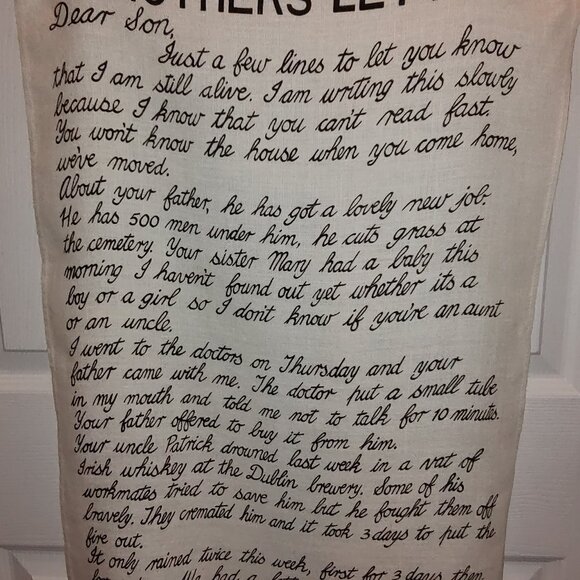 Dear Son,
Just a few lines to let you know
that I am still alive. I am writing this slowly
because I know that you can't read fast.
You won't know the house when you come home,
we've moved.
About your father, he has got a lovely new job.
He has 500 men under him, he cuts grass at
the cemetery. Your sister Mary had a baby this
morning I haven't found out yet whether its a
boy or a girl so I don't know if you're an aunt
or an uncle.
I went to the doctors on Thursday and your
father came with me. The doctor put a small tube
in my mouth and told me not to talk for 10 minutes.
Your father offered to buy it from him.
Your uncle Patrick drowned last week in a vat of
Irish whiskey at the Dublin brewery. Some of his
workmates tried to save him but he fought them off
bravely. They cremated him and it took 3 days to put the
fire out.
It only rained twice this week, first for 3 days then